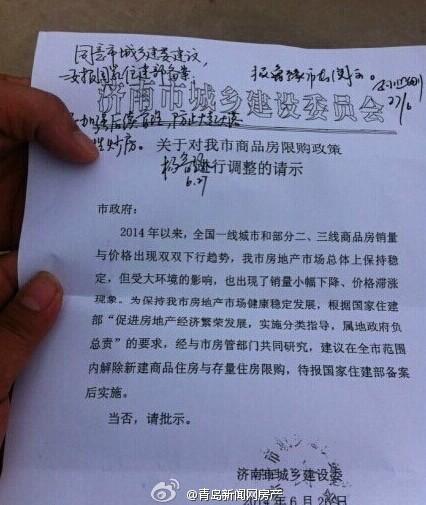 同意市城乡建委建议,
报国家住建部备案
济南市城乡建设委员会
关于对我市商品房限购政策
进行调整的请示
6.27
市政府:
2014年以来,全国一线城市和部分二、三线商品房销量
与价格出现双双下行趋势,我市房地产市场总体上保持稳
定,但受大环境的影响,也出现了销量小幅下降、价格滞涨
现象。为保持我市房地产市场健康稳定发展,根据国家住建
部“促进房地产经济繁荣发展,实施分类指导,属地政府负
总责”的要求,经与市房管部门共同研究,建议在全市范围
内解除新建商品住房与存量住房限购,待报国家住建部备案
后实施。
当否,请批示。
济南市城乡建设委
2014年6月26日
@青岛新闻网房产